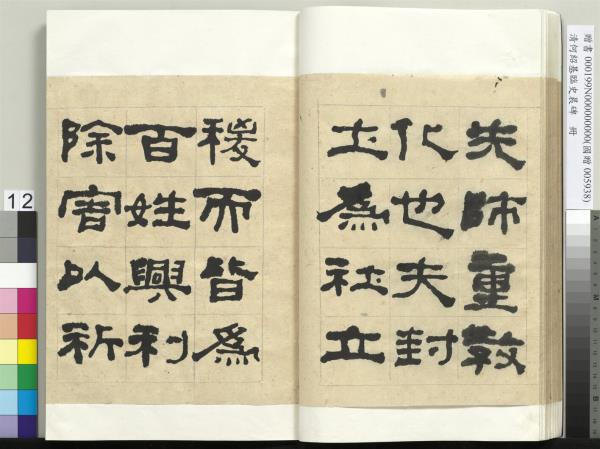 先師重教
化也夫封
土為社立
稷而皆為
百姓興利
除害以祈
贈書 000199N000000000(國贈 005938)
清何紹基臨史晨碑 冊
12